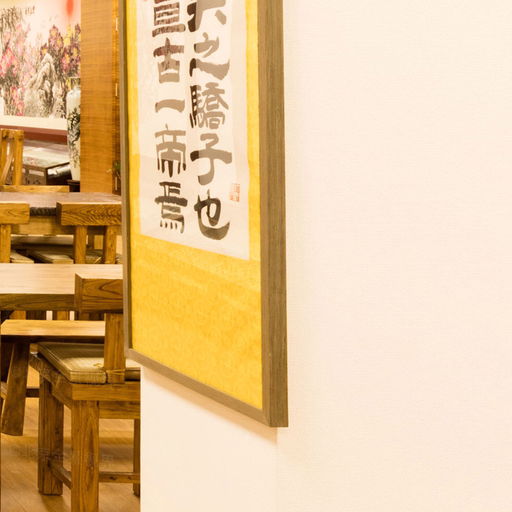 天之驕子也
直古一帝焉